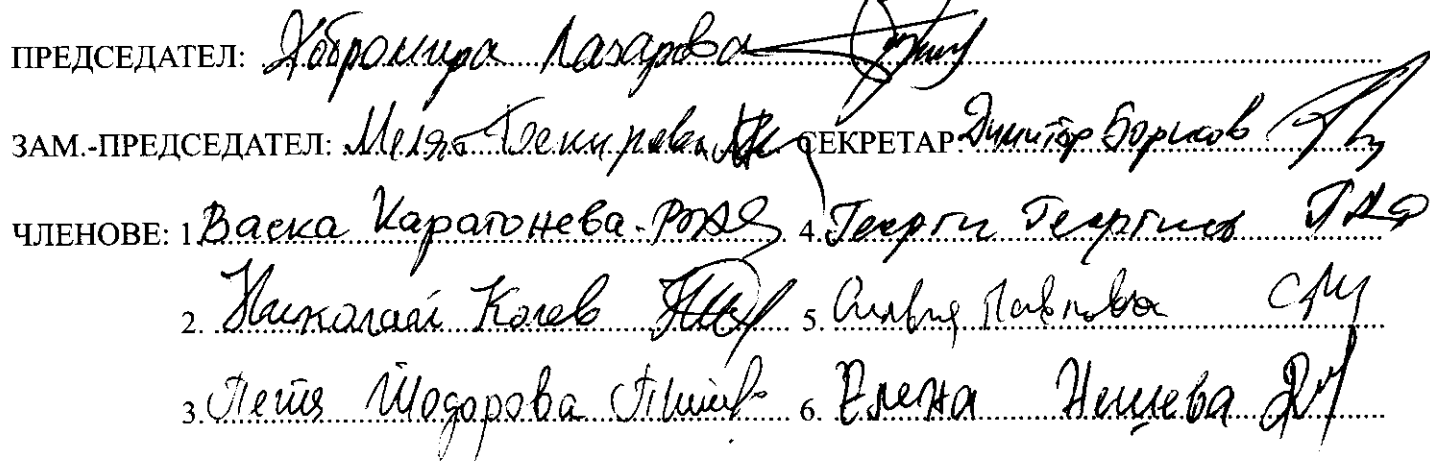 ПРЕДСЕДАТЕЛ: Добромира Лазарова
ЗАМ.-ПРЕДСЕДАТЕЛ: Бекирова СЕКРЕТАР: Димитър Борисов
ЧЛЕНОВЕ: 1. Васка Каратонева 4. Георги Георгиев
2. Николай Колев 5. Силвия Павлова
3. Петя Тодорова 6. Елена Нешева